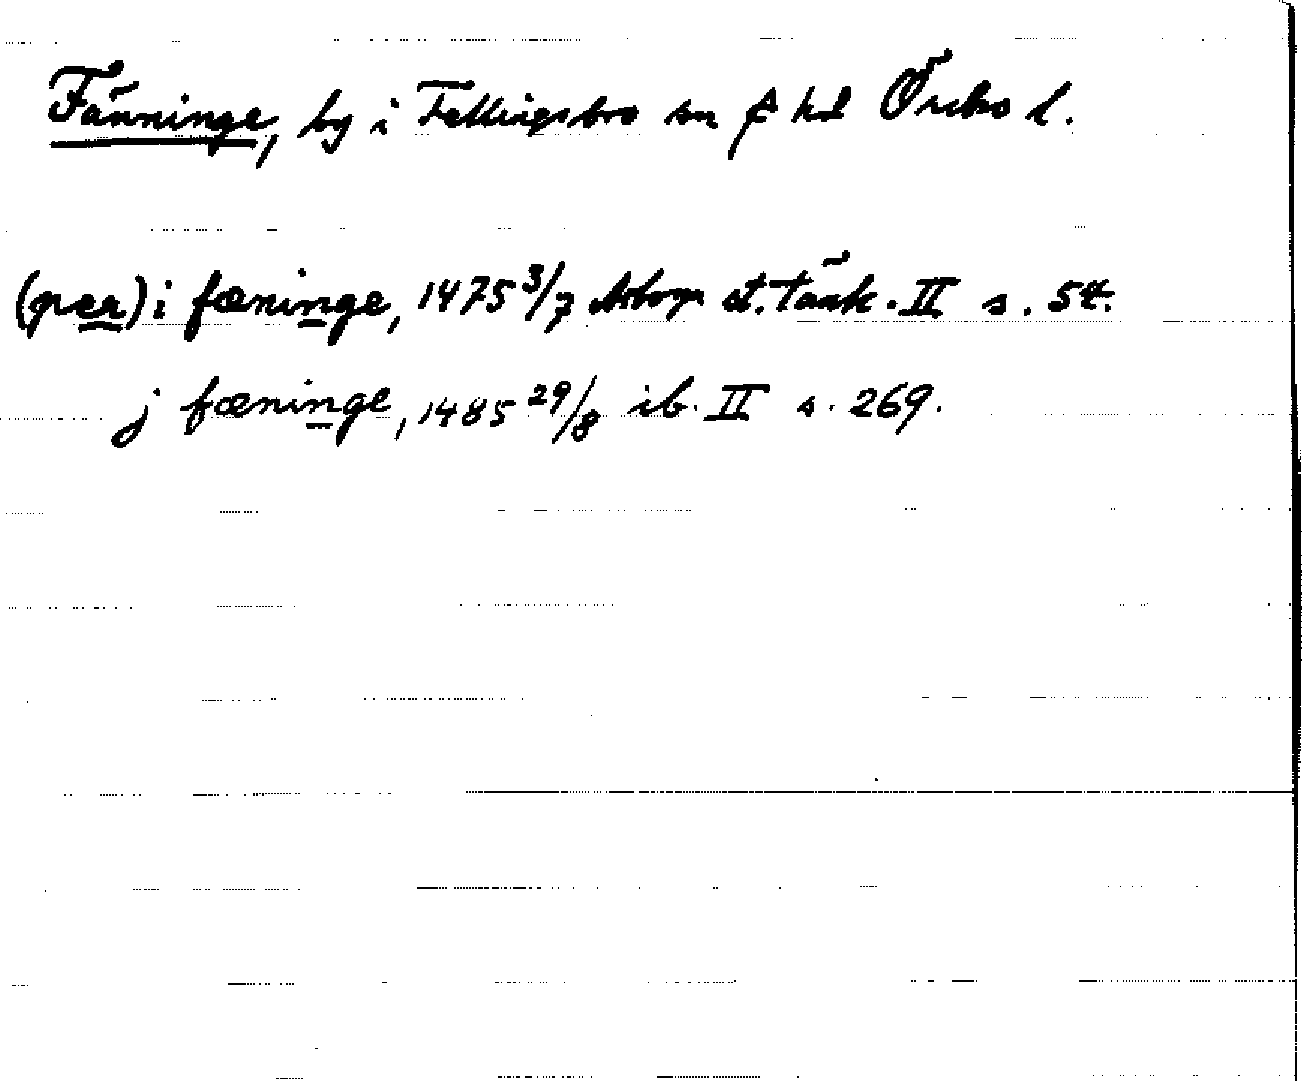 Fänninge, by i Fellingsbro sn f hd Örebo l.
(per) i fæninge, 1475 3/7 Arboga st. Tänk. II s. 54.
j fæninge, 1485 29/8 ib. II s. 269.